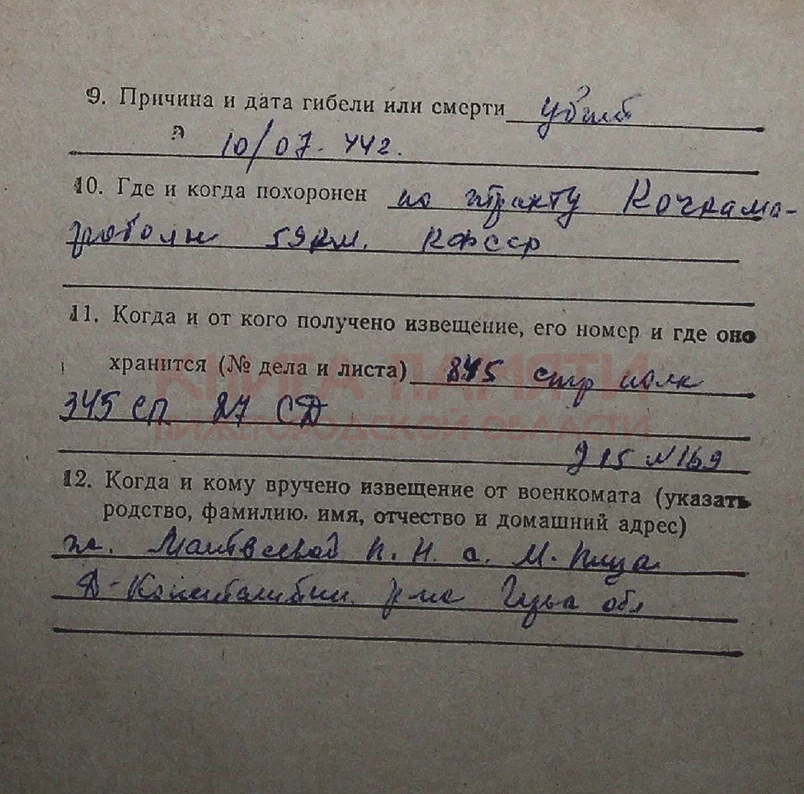 9. Причина и дата гибели или смерти убит
10/07. 442.
10. Где и когда похоронен по тракту Кочкама-
реболы 59 км. КФССР
11. Когда и от кого получено извещение, его номер и где оно
хранится (№ дела и листа) 845 стр полк
КНИГА ПАМЯТИ
345 СП 27 СД
НИЖЕГОРОДСКОЙ ОБЛАСТИ
д 15 N 169
12. Когда и кому вручено извещение от военкомата (указать
родство, фамилию. имя, отчество и домашний адрес)
Матвеевой П. Н. с. М. Пица
Д-Константин. р-на Горьк обл